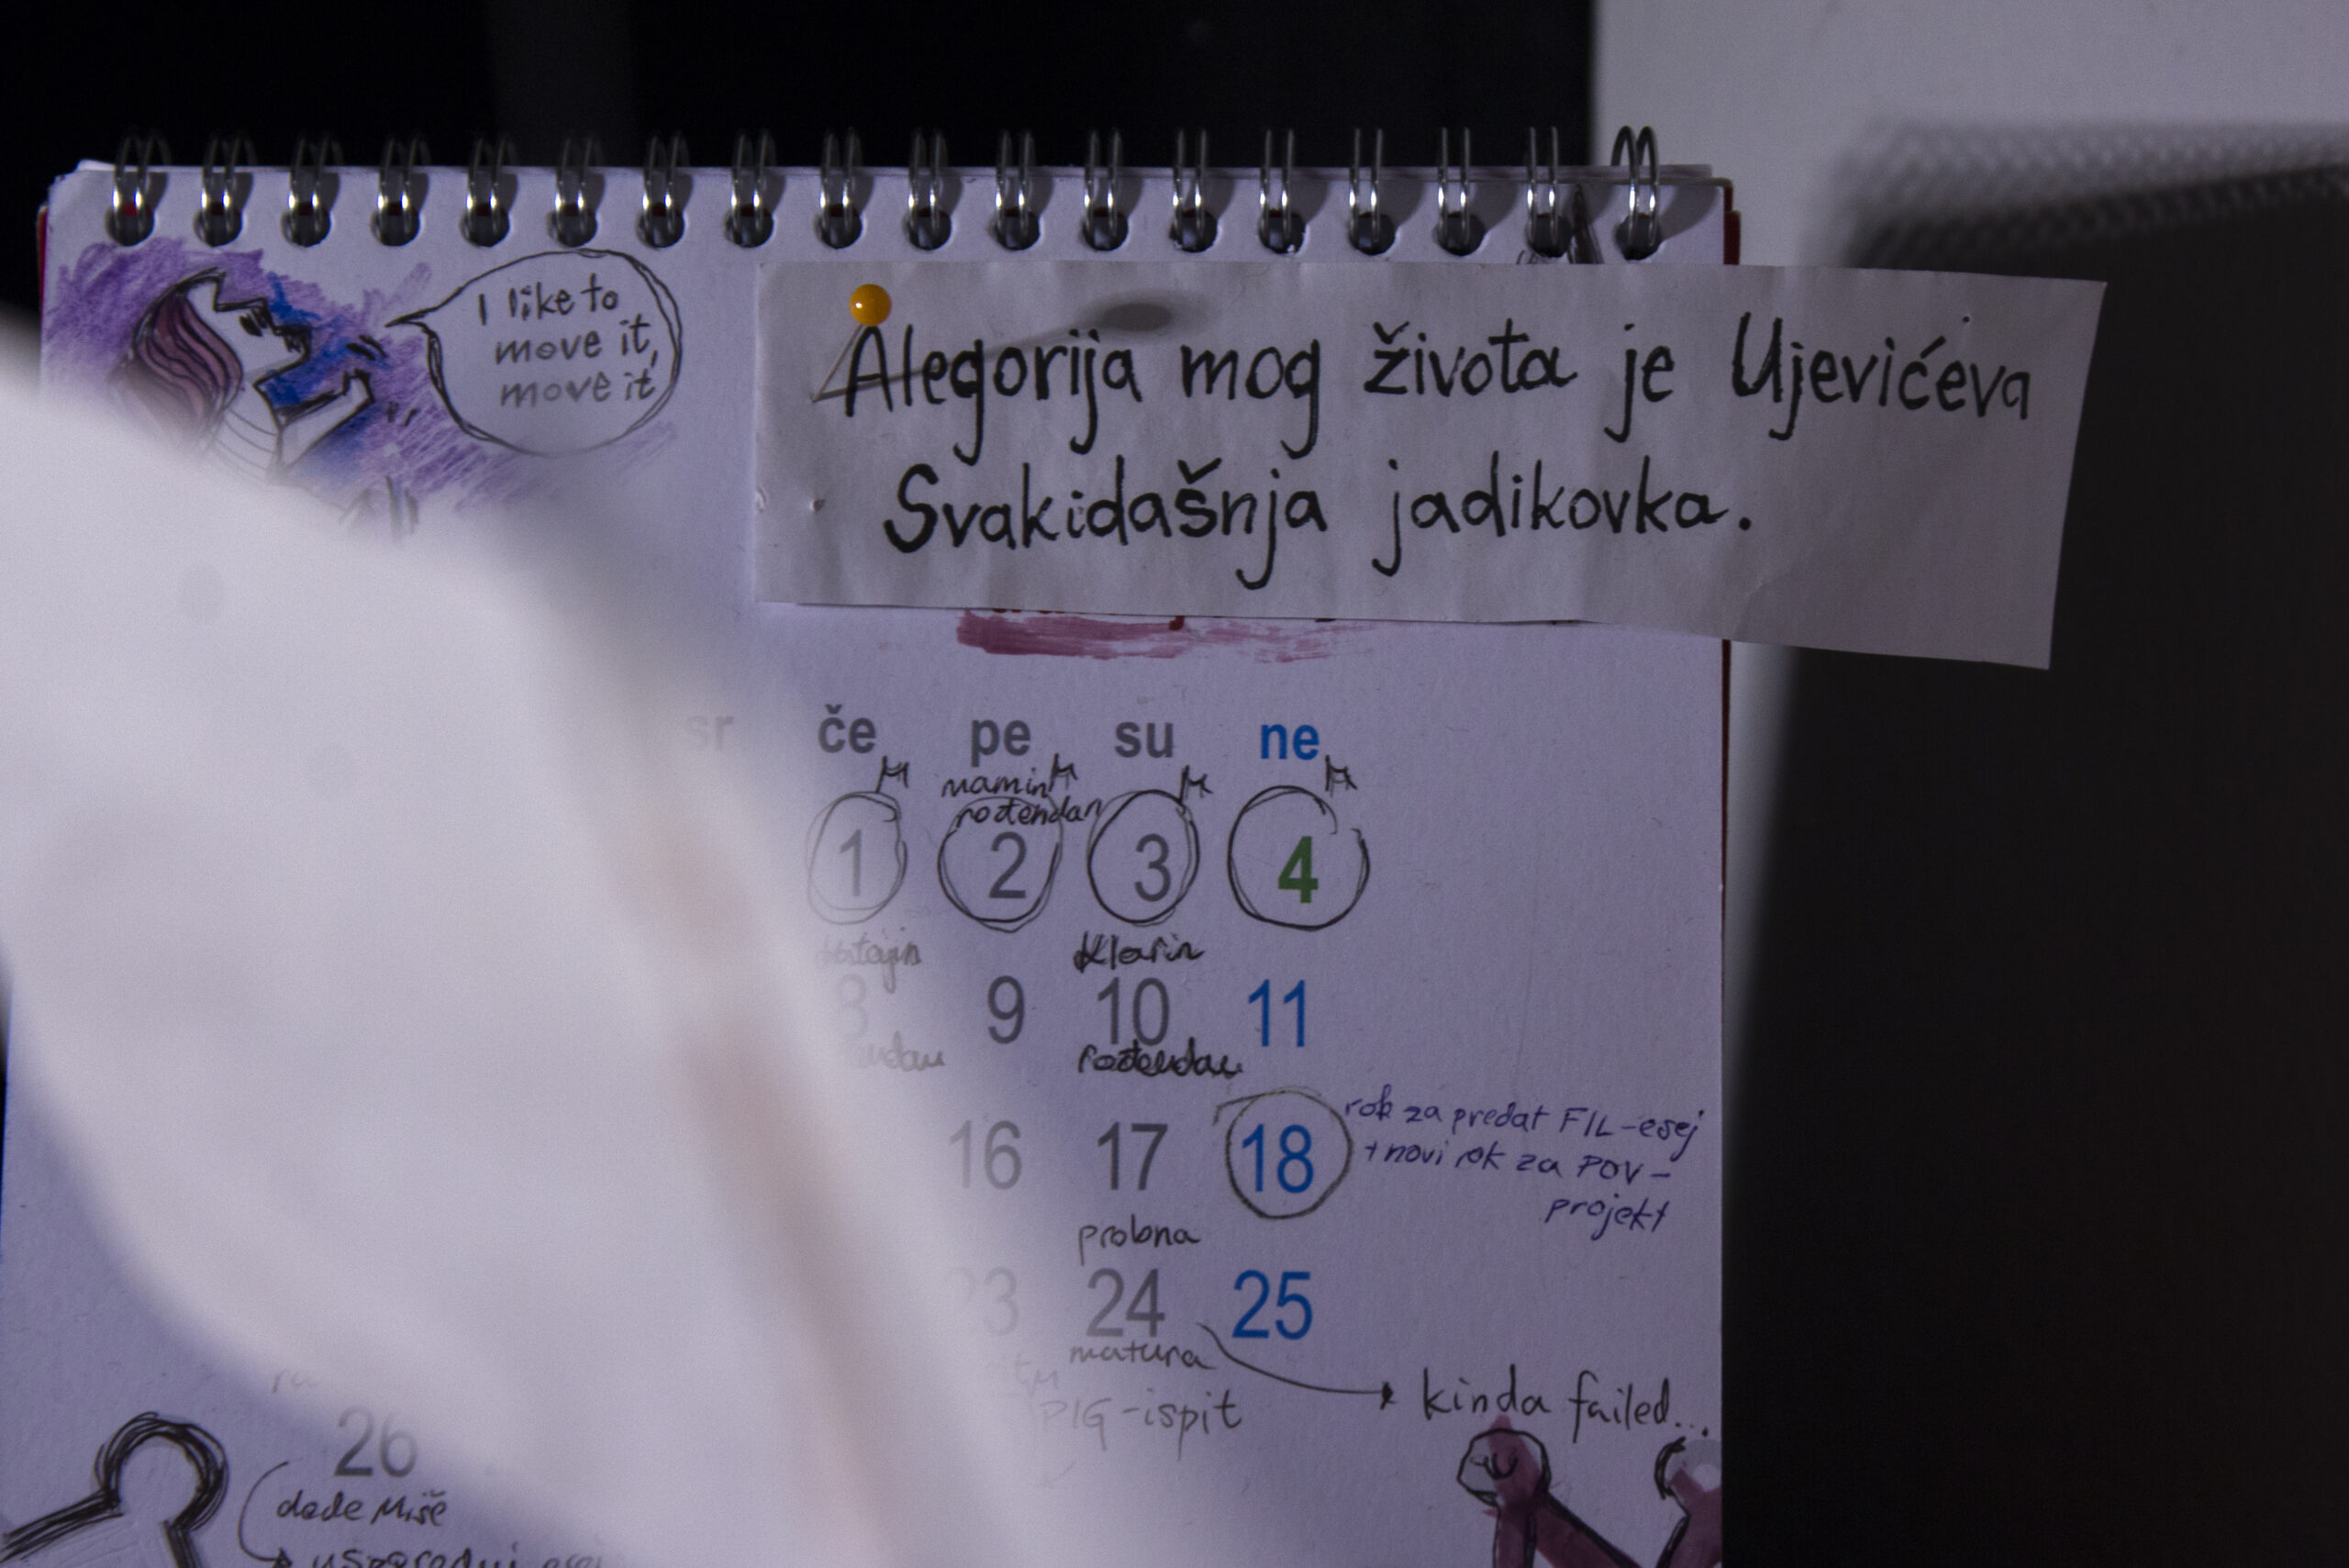 I like to
move it,
move it
Alegorija mog života je Ujevićeva
Svakidašnja jadikovka.
sr če pe su ne
mamin
rođendan
1 2 3 4
Klarin
8 9 10 11
rođendan
rok za predat FIL-esej
+novi rok za POV-
projekt
16 17 18
probna
23 24 25
matura
PIG-ispit
kinda failed...
26
dođe Miše